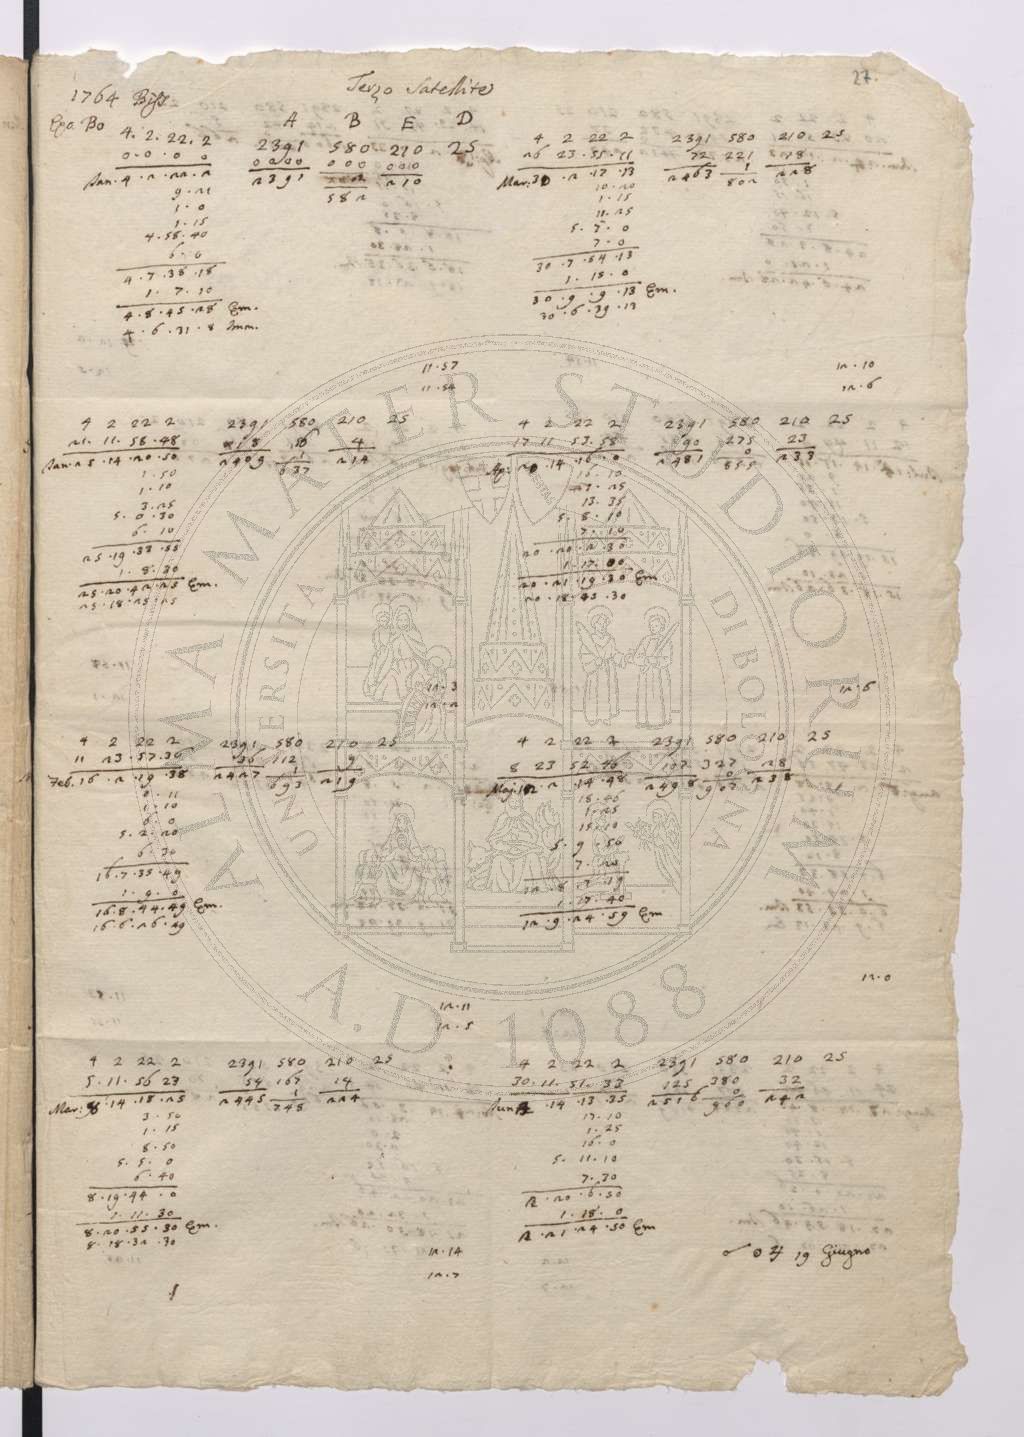 27.
1764 Biss
Terzo Satellite
Epo. Bo
A B E D
4. 2. 22. 2
2391 580 210 25
0. 0. 0 0
0000 000 000
Jan. 4. 2. 22. 2
2391 210
582
9. 21
1. 0
1. 15
4. 58. 40
6. 0
4. 7. 38. 18
1. 7. 10
4. 8. 45. 28 Em.
4. 6. 31. 8 Imm.
11. 57
11. 54
4 2 22 2 2391 580 210 25
21. 11. 58. 48 18 56 4
1
Jan. 25. 14. 20. 50 2409 637 214
1. 50
1. 10
3. 25
5. 0. 30
6. 10
25. 19. 33. 55
1. 8. 30
25. 20. 42. 25 Em.
25. 18. 25. 25
12. 3
12. 2
4 2 22 2 2391 580 210 25
11 23. 57. 36 36 112 9
1
Feb. 16. 2. 19. 38 2427 693 219
0. 11
1. 10
6. 0
5. 2. 20
6. 30
16. 7. 35. 49
1. 9. 0
16. 8. 44. 49 Em.
16. 6. 26. 49
12. 11
12. 5
4 2 22 2 2391 580 210 25
5. 11. 56 23 54 167 14
1
Mar: 8. 14. 18. 25 2445 748 224
3. 50
1. 15
8. 50
5. 5. 0
6. 40
8. 19. 44. 0
1. 11. 30
8. 20. 55. 30 Em.
8. 18. 32. 30
12. 14
12. 7
4 2 22 2 2391 580 210 25
26 23. 55. 11 72 221 18
1
Mar: 30. 2. 17. 13 2463 802 228
10. 20
1. 15
11. 25
5. 7. 0
7. 0
30. 7. 54. 13
1. 15. 0
30. 9. 9. 13 Em.
30. 6. 39. 13
12. 10
12. 6
4 2 22 2 2391 580 210 25
17 11 53. 58 90 275 23
0
Ap: 20. 14. 16. 0 2481 855 233
16. 10
1. 25
13. 35
5. 8. 10
7. 10
20. 20. 2. 30
1. 17. 00
20. 21. 19. 30 Em
20. 18. 45. 30
12. 6
4 2 22 2 2391 580 210 25
8 23 52 46 107 327 28
0
Maj. 12. 2. 14. 48 2498 907 238
18. 46
1. 25
15. 10
5. 9. 50
7. 20
12. 8. 7. 19
1. 17. 40
12. 9. 24. 59 Em
12. 0
4 2 22 2 2391 580 210 25
30. 11. 51. 33 125 380 32
0
Jun. 2. 14. 13. 35 2516 960 242
17. 10
1. 25
16. 0
5. 11. 10
7. 30
2. 20. 6. 50
1. 18. 0
2. 21. 24. 50 Em
☌ ☉ ♃ 19 Giugno
ALMA MATER STUDIORUM
UNIVERSITÀ DI BOLOGNA
A.D. 1088